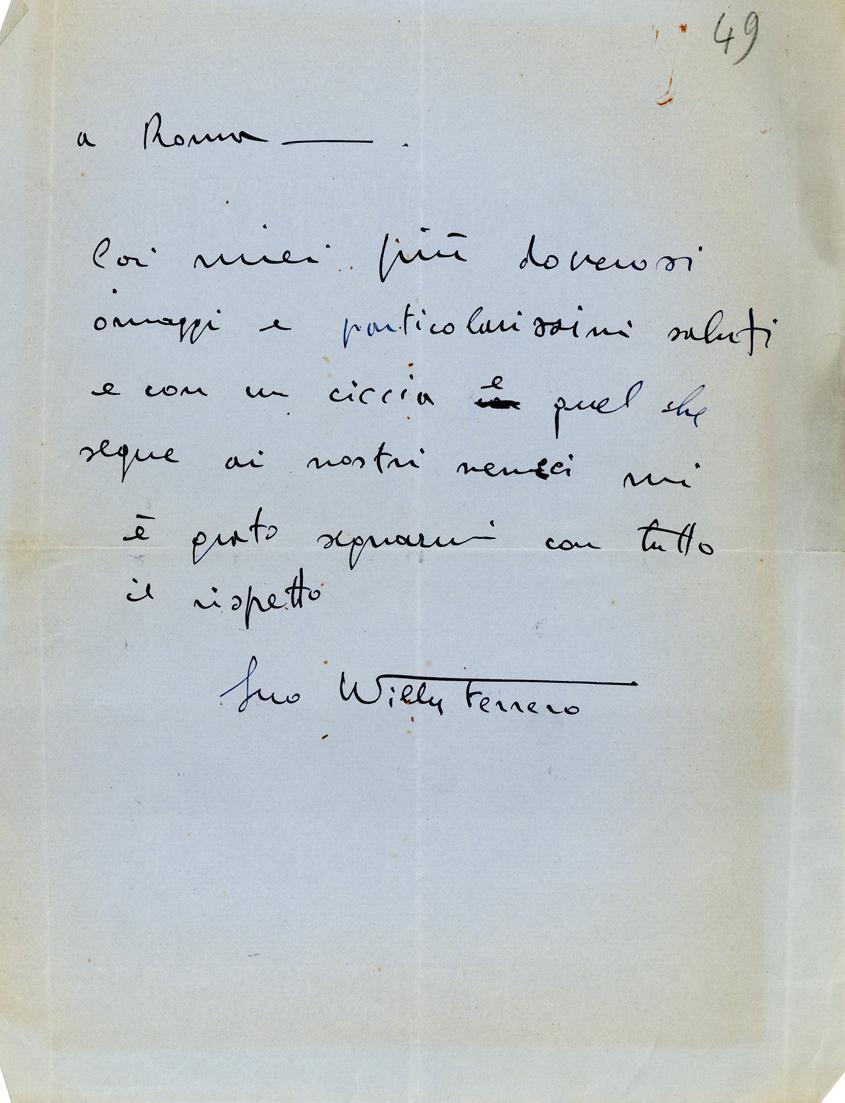 49
a Roma — .
Coi miei più doverosi
omaggi e particolarissimi saluti
e con un ciccia e quel che
segue ai nostri nemici mi
è grato segnarmi con tutto
il rispetto
Suo Willy Ferrero